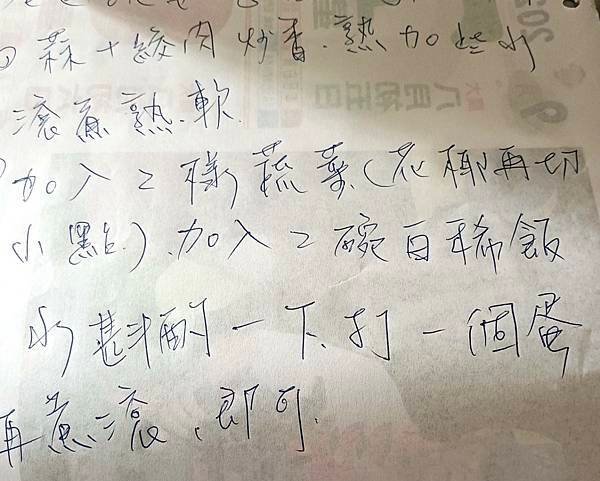 蒜+絞肉炒香.熟加些水
滾煮熟.軟.
加入2樣蔬菜(花椰再切
小點).加入2碗白稀飯
水斟酌一下.打一個蛋
再煮滾、即可.